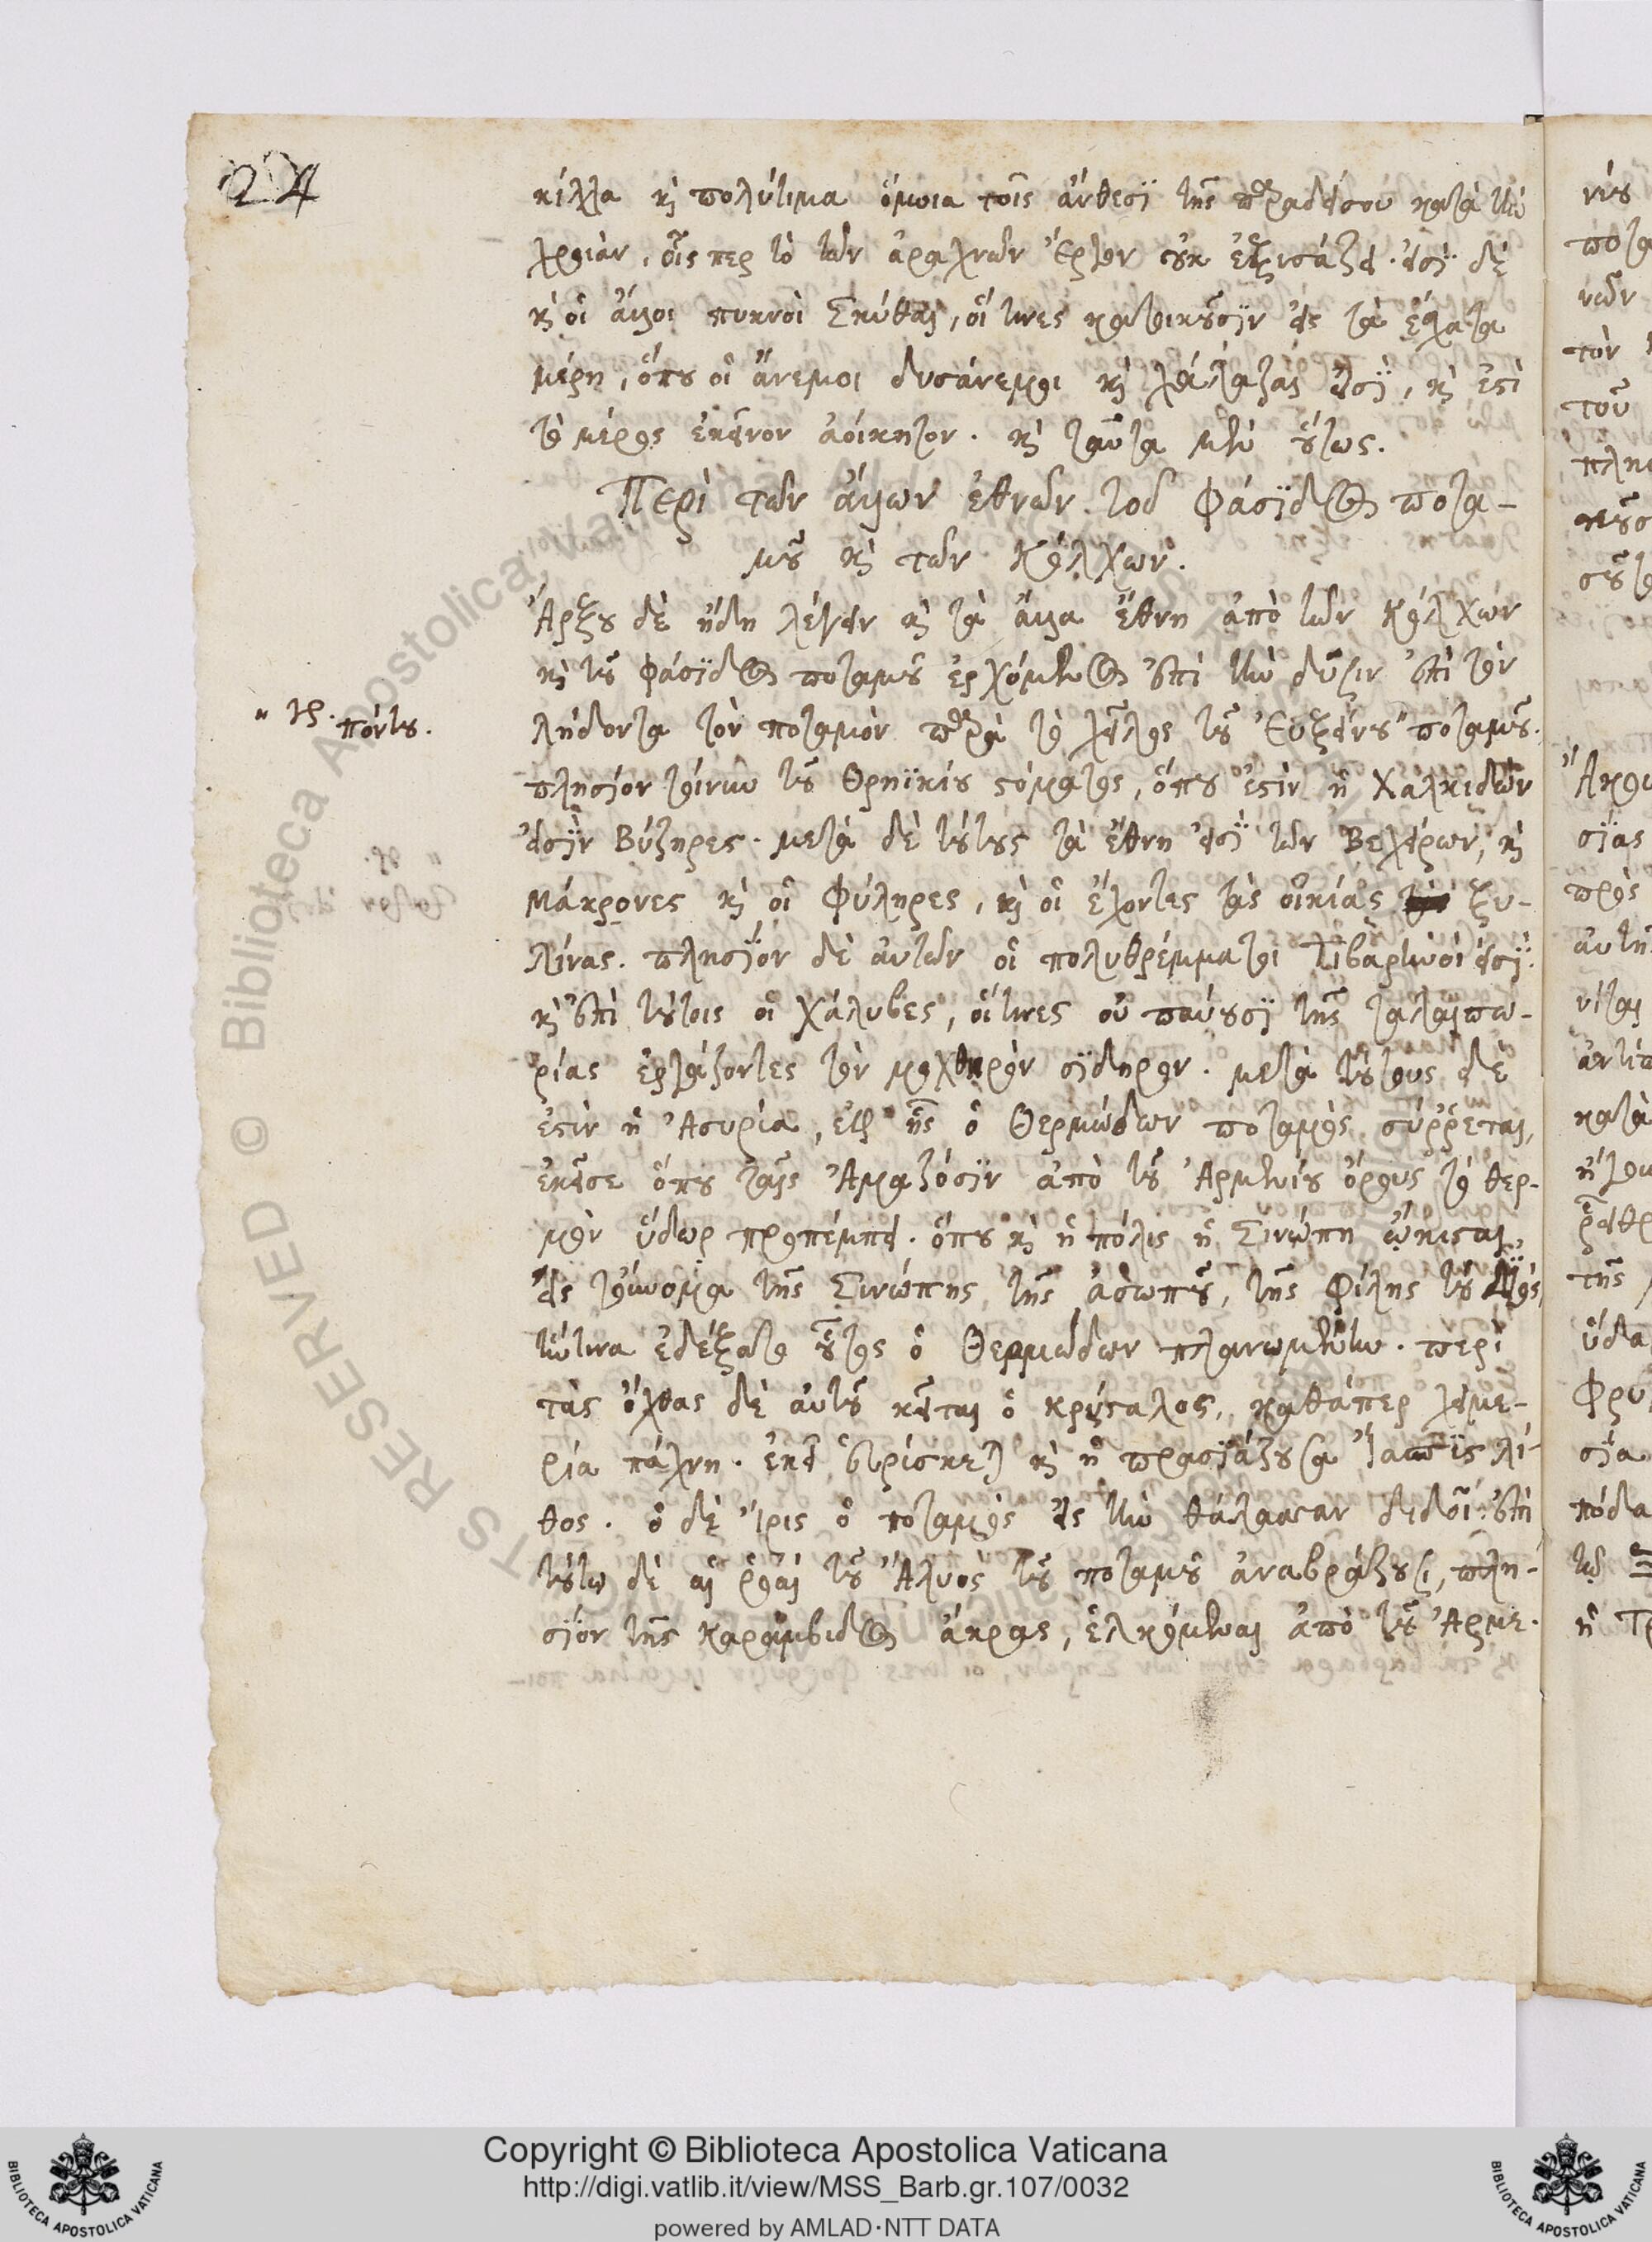 24
κίλλα καὶ πολύτιμα ὅμοια τοῖς ἄνθεσϊ τῆς παραδείσου κατὰ τὴν
χροιὰν, οἷς περ τὸ τῶν ἀραχνῶν ἔργον οὐκ ἐξισάζει. εἰσῒ δὲ
καὶ οἱ ἄλλοι πυκνοὶ Σκύθαι, οἵ τινες κατοικοῦσϊν εἰς τὰ ἔσχατα
μέρη, ὅπου οἱ ἄνεμοι δυσάνεμοι καὶ χάλαζαι εἰσῒ, καὶ ἐστὶ
τὸ μέρος ἐκεῖνον ἀοίκητον. καὶ ταῦτα μὲν οὕτως.
Περὶ τῶν ἄλλων ἐθνῶν τοῦ Φάσϊδος ποτα-
μοῦ καὶ τῶν Κόλχων.
Ἄρξου δὲ ἤδη λέγειν καὶ τὰ ἄλλα ἔθνη ἀπὸ τῶν Κόλχων
καὶ τοῦ Φάσϊδος ποταμοῦ ἐρχόμενος ἐπὶ τὴν δύσιν ἐπὶ τὸν
λήδοντα τὸν ποταμὸν παρὰ τὸ χεῖλος τοῦ Εὐξείνου" ποταμοῦ.
" γρ. πόντου.
πλησίον τοίνυν τοῦ Θρηϊκίου στόματος, ὅπου ἐστὶν ἡ Χαλκιδὼν
εἰσῒν Βύζηρες. μετὰ δὲ τούτους τὰ ἔθνη εἰσῒ τῶν Βεχείρων, καὶ
Μάκρονες καὶ οἱ Φύληρες, καὶ οἱ ἔχοντες τὰς οἰκίας ξυ-
λίνας. πλησϊόν δὲ αὐτῶν οἱ πολυθρέμματοι Τιβαρηνοί εἰσϊ.
καὶ ἐπὶ τούτοις οἱ Χάλυβες, οἵ τινες οὐ παύουσϊ τῆς ταλαιπω-
ρίας ἐργάζοντες τὸν μοχθηρὸν σϊδηρον. μετὰ τούτους δὲ
ἐστὶν ἡ Ἀσυρία, ἐξ ἧς ὁ Θερμώδων ποταμὸς σύῤῥεται,
ἐκεῖσε ὅπου ταῖς Ἀμαζόσϊν ἀπὸ τοῦ Ἀρμενίου ὄρους τὸ θερ-
μὸν ὕδωρ προπέμπει. ὅπου καὶ ἡ πόλις ἡ Σινώπη ᾤκισται,
εἰς τὄνομα τῆς Σινώπης τῆς ἀσωποῦ, τῆς Φίλης τοῦ Διὸς,
ἥντινα ἐδέξατο οὗτος ὁ Θερμώδων πλανωμένην. περὶ
τὰς ὄχθας δὲ αὐτοῦ κεῖται ὁ κρύσταλος, καθάπερ χειμε-
ρία πάχνη. ἐκεῖ εὑρίσκεται καὶ ἡ πρασϊάζουσα Ἴασπϊς λί-
θος. ὁ δὲ Ἴρις ὁ ποταμὸς εἰς τὴν θάλασσαν διδοῖ. ἐπὶ
τούτῳ δὲ αἱ ῥοαὶ τοῦ Ἅλυος τοῦ ποταμοῦ ἀναβράζουσι, πλη-
σϊόν τῆς Καράμβιδος ἄκρας, ἑλκόμεναι ἀπὸ τοῦ Ἀρμε-
Copyright © Biblioteca Apostolica Vaticana
http://digi.vatlib.it/view/MSS_Barb.gr.107/0032
powered by AMLAD·NTT DATA